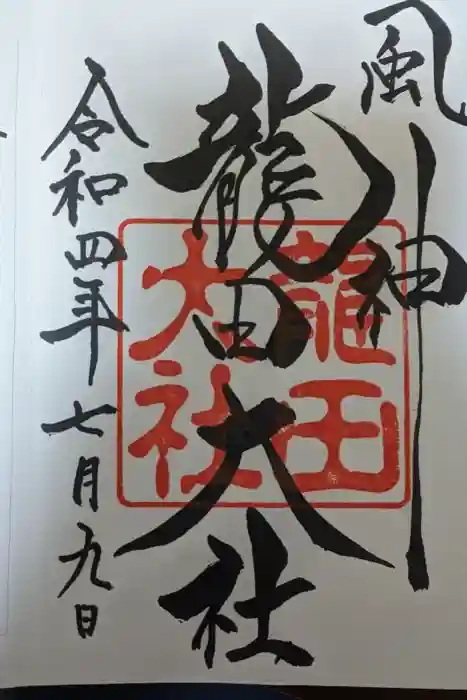 風神
龍田大社
龍田
大社
令和四年七月九日